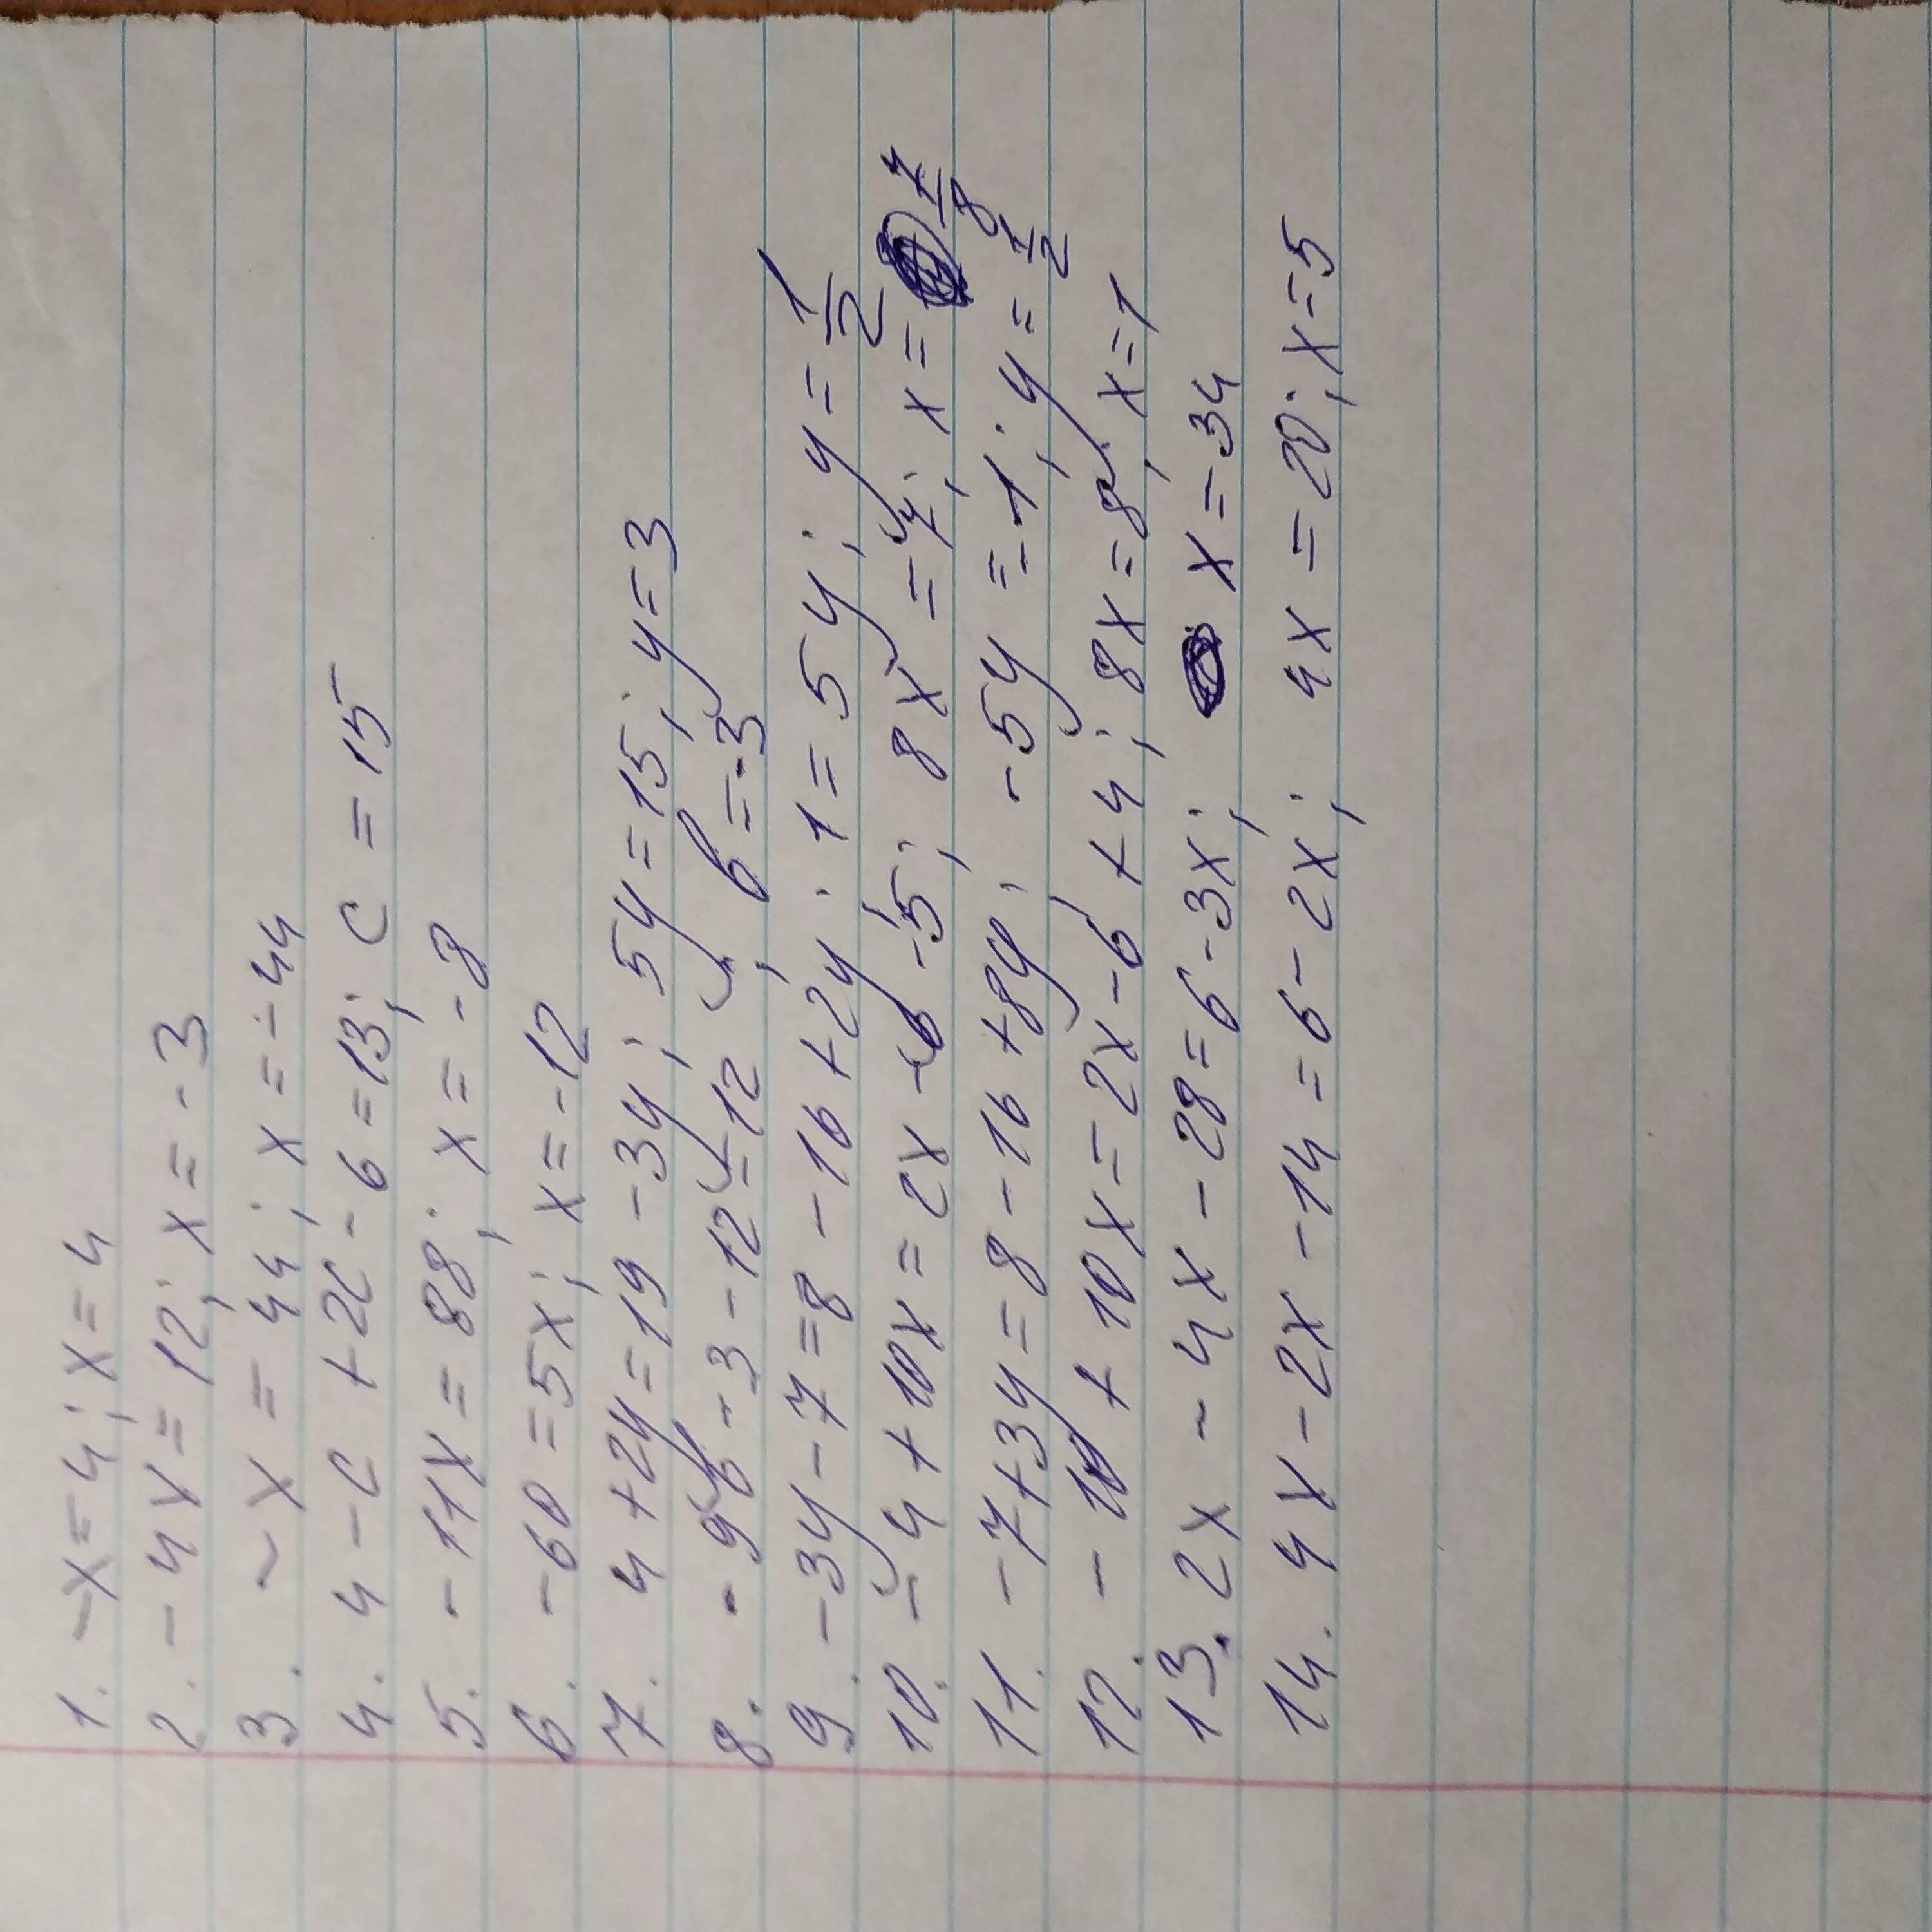 1. -x = 4; x = 4
2. - 4x = 12; x = - 3
3. - x = 44; x = - 44
4. 4 - c + 2c - 6 = 13; c = 15
5. - 11x = 88; x = - 8
6. - 60 = 5x; x = - 12
7. 4 + 2y = 19 - 3y; 5y = 15; y = 3
8. - 9b - 3 - 12 = 12; b = - 3
9. - 3y - 7 = 8 - 16 + 2y; 1 = 5y; y = 1/2
10. - 4 + 10x = 2x - 6 - 5; 8x = - 7; x = 7/8
11. - 7 + 3y = 8 - 16 + 8y; - 5y = - 1; y = 1/2
12. - 10 + 10x = 2x - 6 + 4; 8x = 8; x = 1
13. 2x - 4x - 28 = 6 - 3x; x = 34
14. 4x - 2x - 14 = 6 - 2x; 4x = 20; x = 5